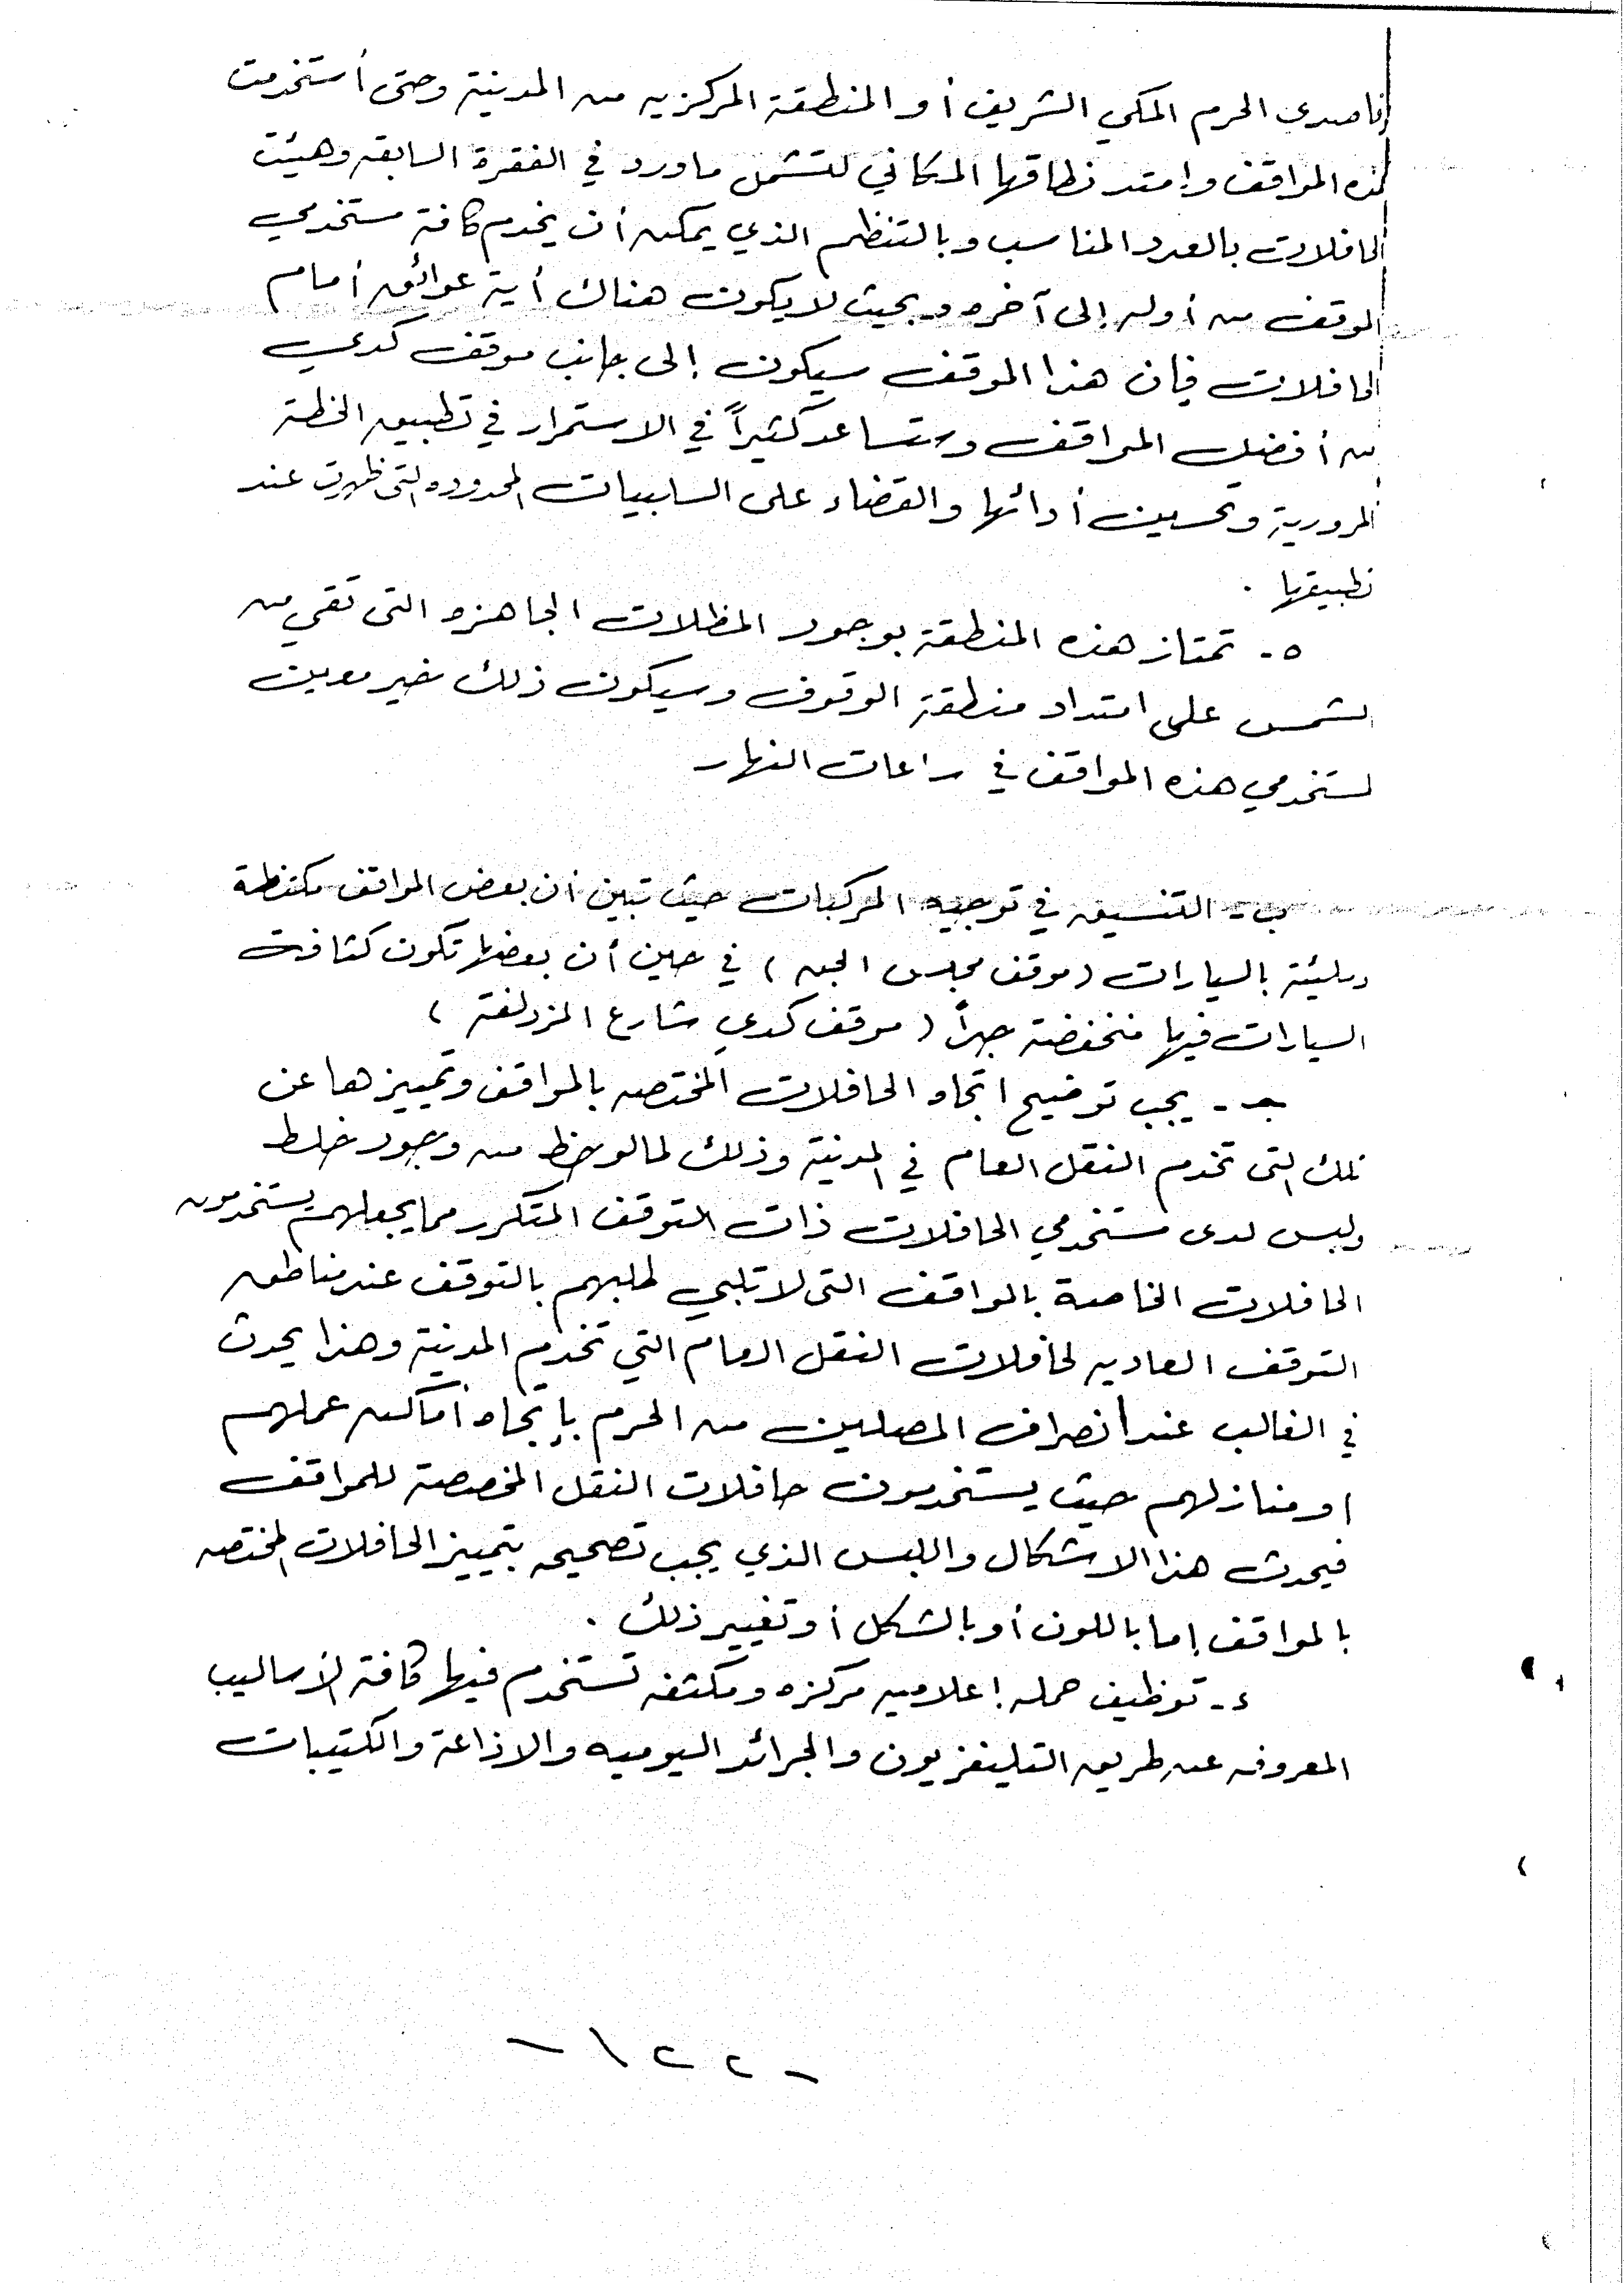 قاصدي الحرم المكي الشريف أو المنطقة المركزيه من المدينة وحتى أستخدمت
هذه المواقف وإمتد نطاقها المكاني لتشمل ماورد في الفقرة السابقه وهيئت
الحافلات بالعدد المناسب وبالتنظيم الذي يمكن أن يخدم كافة مستخدمي
الموقف من أوله إلى آخره وبحيث لايكون هناك أية عوائق أمام
الحافلات فإن هذا الموقف سيكون إلى جانب موقف كدي
من أفضل المواقف وستساعد كثيراً في الاستمرار في تطبيق الخطة
المرورية وتحسين أدائها والقضاء على السلبيات المحدوده التى ظهرت عند
تطبيقها .
٥- تمتاز هذه المنطقة بوجود المظلات الجاهزه التى تقي من
الشمس على امتداد منطقة الوقوف وسيكون ذلك خير معين
لمستخدمي هذه المواقف في ساعات النهار
ب - التنسيق في توجيه المركبات حيث تبين أن بعض المواقف مكتظة
ومليئة بالسيارات (موقف مجلس الجن) في حين أن بعضها تكون كثافة
السيارات فيها منخفضة جداً (موقف كدي شارع المزدلفة)
جـ - يجب توضيح اتجاه الحافلات المختصه بالمواقف وتمييزها عن
تلك التى تخدم النقل العام في المدينة وذلك لمالوحظ من وجود خلط
ولبس لدى مستخدمي الحافلات ذات التوقف المتكرر مما يجعلهم يستخدمون
الحافلات الخاصة بالمواقف التى لاتلبي طلبهم بالتوقف عند مناطق
التوقف العاديه لحافلات النقل العام التي تخدم المدينة وهذا يحدث
في الغالب عند انصراف المصلين من الحرم بإتجاه أماكن عملهم
او منازلهم حيث يستخدمون حافلات النقل المخصصة للمواقف
فيحدث هذا الاشكال واللبس الذي يجب تصحيحه بتمييز الحافلات المختصه
بالمواقف إما باللون أو بالشكل أو تغيير ذلك .
د- توظيف حمله إعلاميه مركزه ومكثفه تستخدم فيها كافة الأساليب
المعروفه عن طريق التليفزيون والجرائد اليوميه والاذاعة والكتيبات
- ١٢٢ -